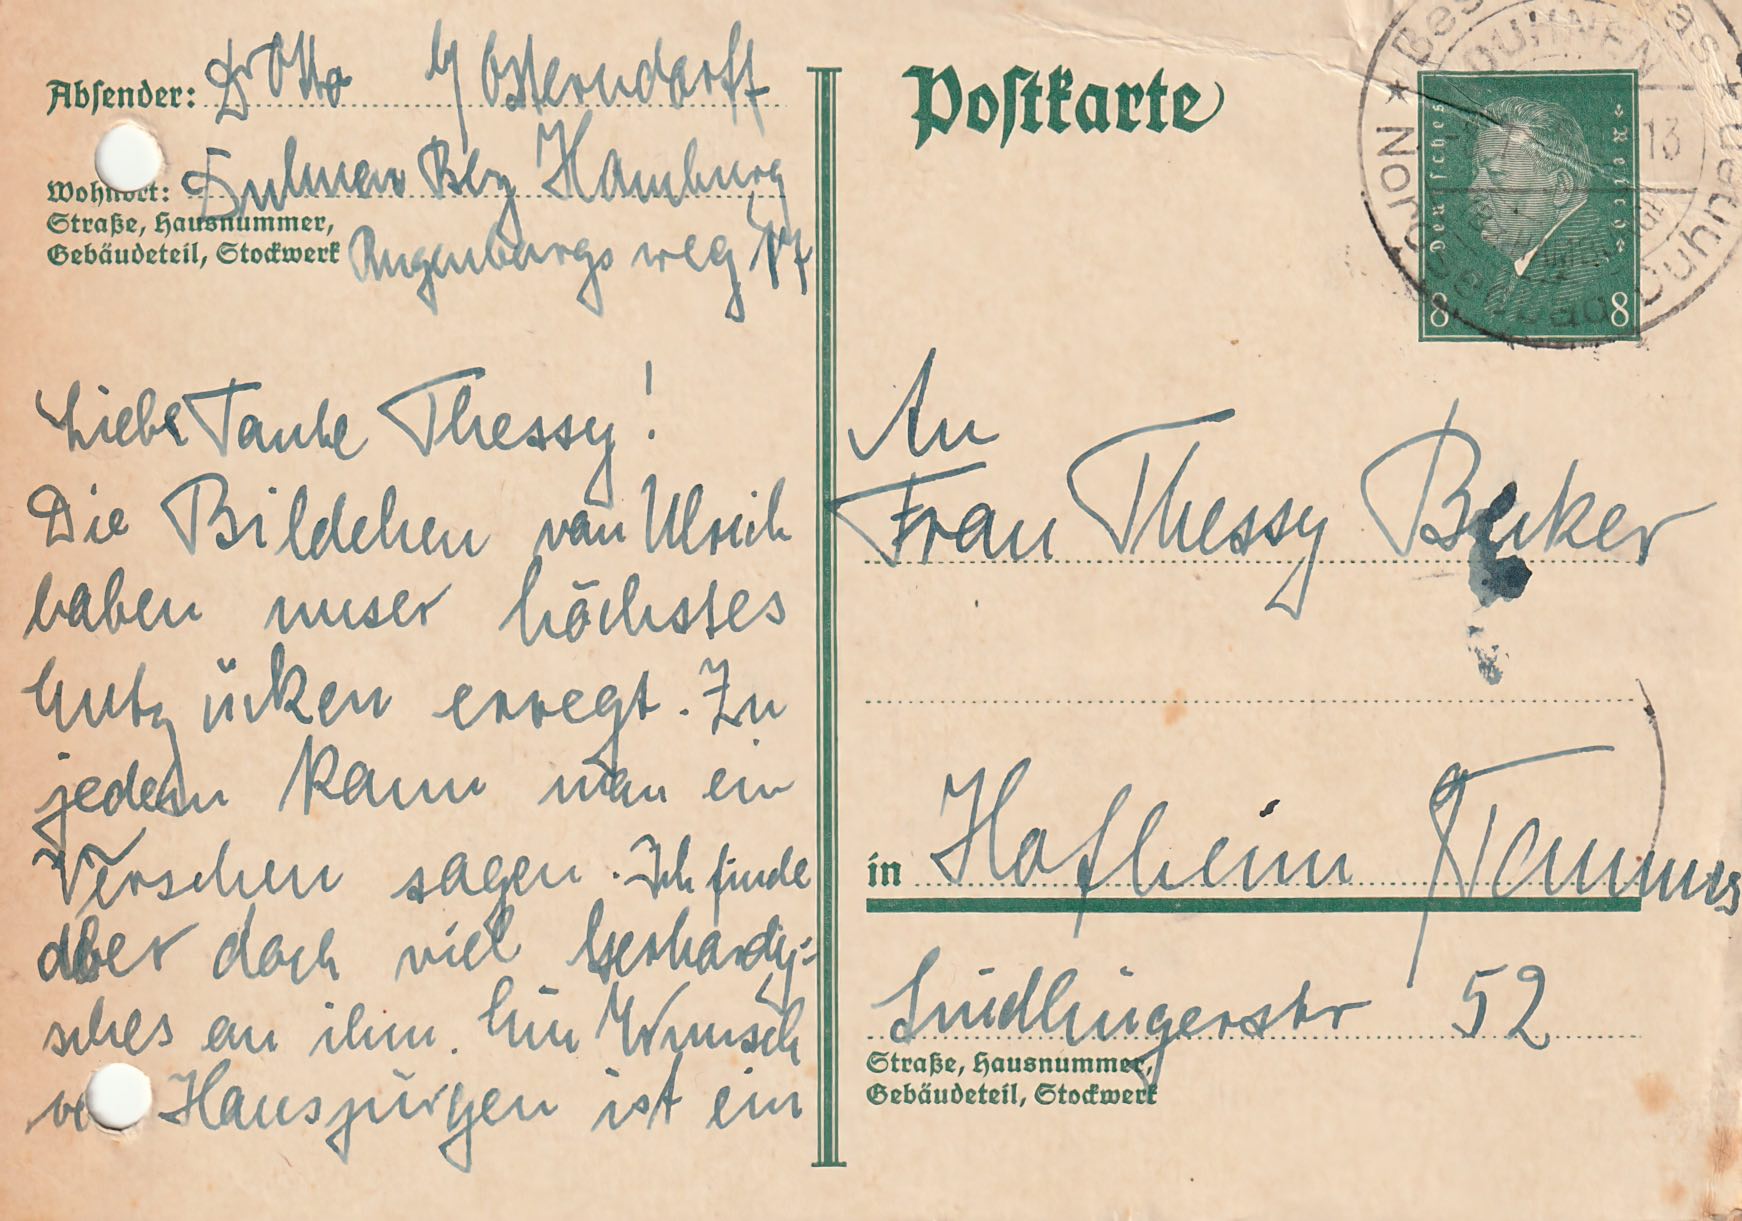 Postkarte
Absender: Dr Otto Osterndorff
Wohnort: Hamburg
Straße, Hausnummer,
Gebäudeteil, Stockwerk Rugenbargsweg 17
Deutsches Reich
8 8
Besucht das Nordseebad Duhnen
DUHNEN
13
Liebe Tante Thessy!
Die Bildchen von Ulrich
haben unser höchstes
Entzücken erregt. Zu
jedem kann man ein
Verschen sagen. Ich finde
aber doch viel Gerhardy=
sches an ihm. Ein Wunsch
Hansjürgen ist ein
An
Frau Thessy Becker
in Hofheim Taunus
52
Straße, Hausnummer,
Gebäudeteil, Stockwerk